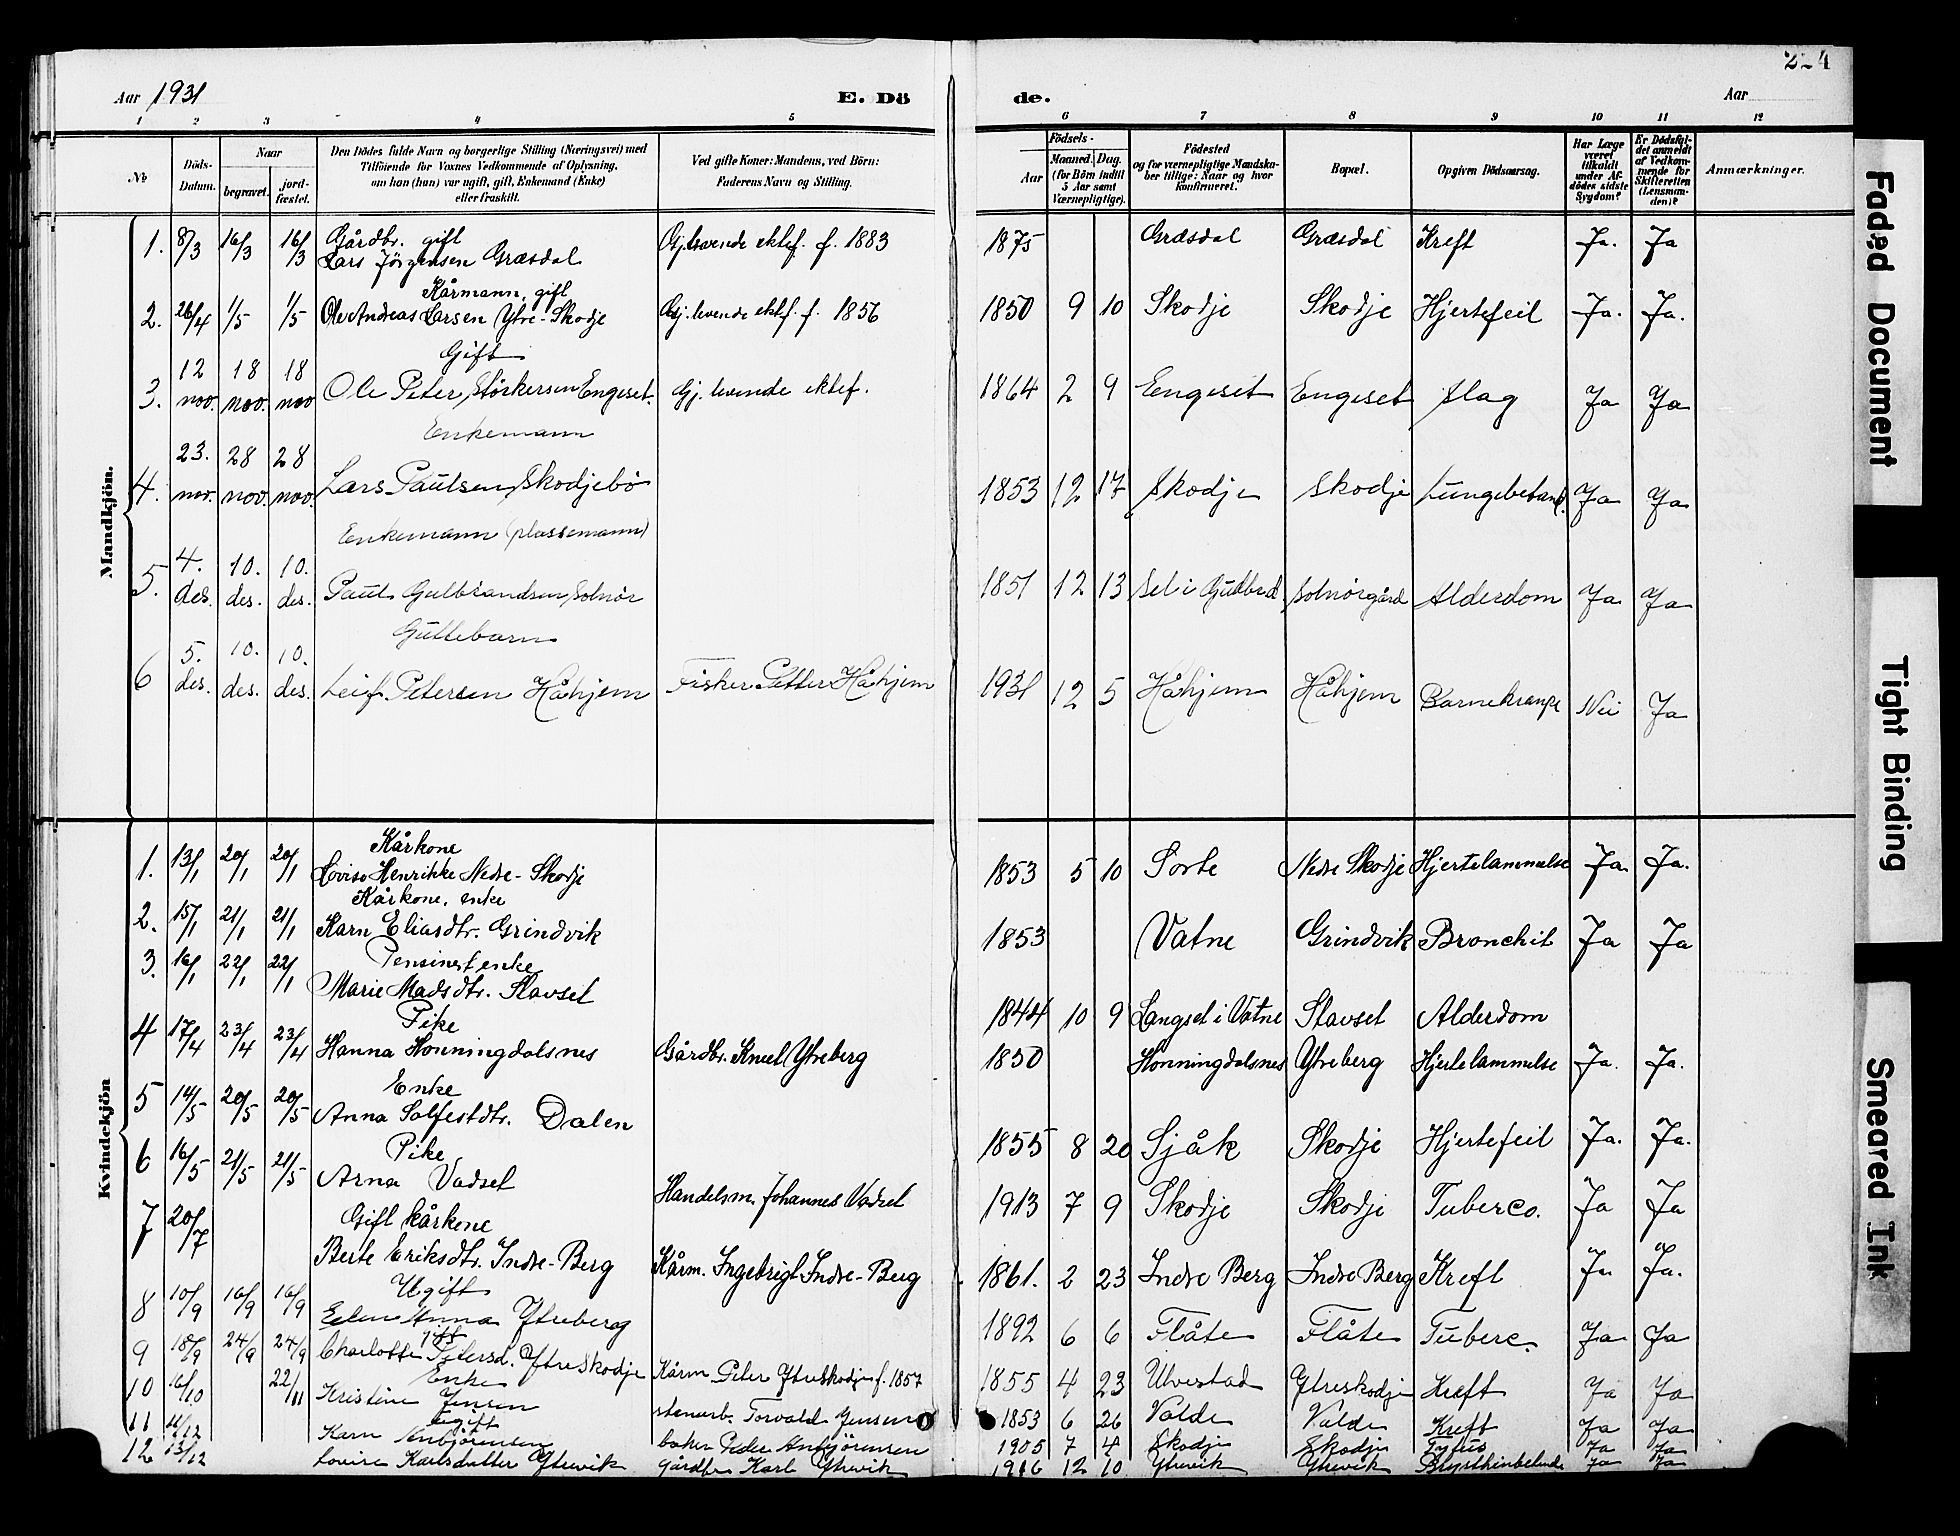 224
Aar 1931 E. Dö de. Aar
1 2 3 4 5 6 7 8 9 10 11 12
No
Döds-Datum.
Naar
begravet.
jord-fæstet.
Den Dödes fulde Navn og borgerlige Stilling (Næringsvei) med
Tilföiende for Voxnes Vedkommende af Oplysning,
om han (hun) var ugift, gift, Enkemand (Enke)
eller fraskilt.
Ved gifte Koner: Mandens, ved Börn:
Faderens Navn og Stilling.
Födsels-
Aar
Maaned. Dag.
(for Börn indtil
5 Aar samt
Værnepligtige).
Födested
og for værnepligtige Mandska-
ber tillige: Naar og hvor
konfirmeret.
Bopæl.
Opgiven Dödsaarsag.
Har Læge
været
tilkaldt
under Af-
dödes sidste
Sygdom?
Er Dödsfal-
det anmeldt
af Vedkom-
mende for
Skifteretten
(Lensman-
den)?
Anmærkninger.
Mandkjön.
Gårdbr. gift
1. 8/3 16/3 16/3 Lars Jörgensen Græsdal Gj.levende ektef. f. 1883 1875 Græsdal Græsdal Kreft Ja. Ja
Kårmann, gift
2. 26/4 1/5 1/5 Ole Andreas Larsen Ytre-Skodje Gj. levende ektf. f. 1856 1850 9 10 Skodje Skodje Hjertefeil Ja. Ja.
Gift
3. 12 nov. 18 nov. 18 nov Ole Peter Störkersen Engeset. Gj. levende ektef. 1864 2 9 Engeset Engeset Slag Ja Ja
Enkemann
4. 23. nov. 28 nov. 28 nov. Lars Paulsen Skodjebö 1853 12 17 Skodje Skodje Lungebetend. Ja Ja
Enkemann (plassemann)
5. 4. des. 10. des. 10. des. Paul Gulbrandsen Solnör 1851 12 13 Sel i Gudbrd Solnörgård Alderdom Ja Ja
Guttebarn
6 5. des. 10. des. 10. des. Leif Petersen Håhjem Fisker Petter Håhjem 1931 12 5 Håhjem Håhjem Barnekrampe Nei Ja
Kvindekjön
Kårkone
1. 13/1 20/1 20/1 Lovise Henrikke Nedre-Skodje 1853 5 10 Sorte Nedre Skodje Hjertelammelse Ja Ja.
Kårkone, enke
2. 15/1 21/1 21/1 Karn Eliasdtr. Grindvik 1853 Vatne Grindvik Bronchit Ja Ja
Pensinest enke
3. 16/1 22/1 22/1 Marie Madsdtr. Slavset 1844 10 9 Langset i Vatne Stavset Alderdom
Pike
4 17/4 23/4 23/4 Hanna Honningdalsnes Gårdbr. Knut Ytreberg 1850 Honningdalsnes Ytreberg Hjertelammelse Ja. Ja.
Enke
5 14/5 20/5 20/5 Anna Solfestdtr. Dalen 1855 8 20 Sjåk Skodje Hjertefeil Ja. Ja.
Pike
6 16/5 21/5 21/5 Arna Vadset Handelsm. Johannes Vadset 1913 7 9 Skodje Skodje Tuberco. Ja Ja
Gift kårkone
7 20/7 Berte Eriksdtr. Indre-Berg Kårm. Ingebrigt Indre-Berg 1861. 2 23 Indre Berg Indre Berg Kreft Ja Ja.
Ugift
8 10/9 16/9 16/9 Elen Anna Ytreberg 1892 6 6 Flåte Flåte Tuberc. Ja Ja
9 18/9 24/9 24/9 Charlotte Petersd. Ytreskodje Kårm Peter Ytreskodje f. 1857 1855 4 23 Ulvestad Ytreskodje Kreft Ja Ja
Enke
10 16/10 22/11 Kristine Jensen stenarb. Torvald Jensen 1853 6 26 Valde Valde Kreft Ja Ja
Ugift
11 11/12 Karn Anbjörensen baker Peder Anbjörensen 1905 7 4 Skodje Skodje Tyfus Ja Ja
12 13/12 Lovise Karlsdatter Ytrevik gårdbr Karl Ytrevik 1916 12 10 Ytrevik Ytrevik Ja Ja
Faded Document
Tight Binding
Smeared Ink